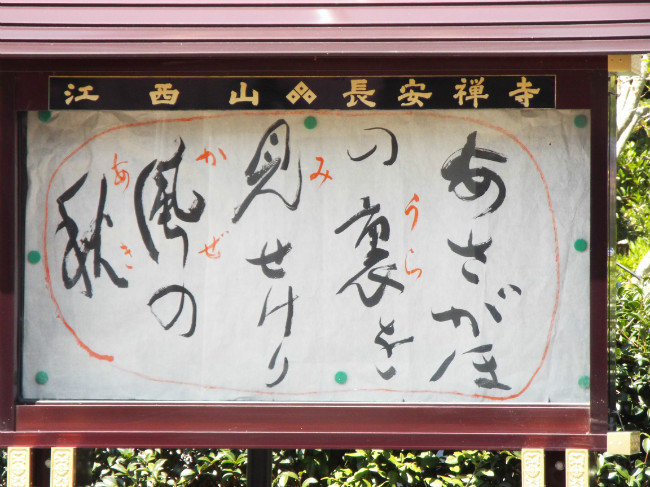 江西山 長安禅寺
あさがほ
の裏を
うら
見せけり
み
風の
かぜ
秋
あき